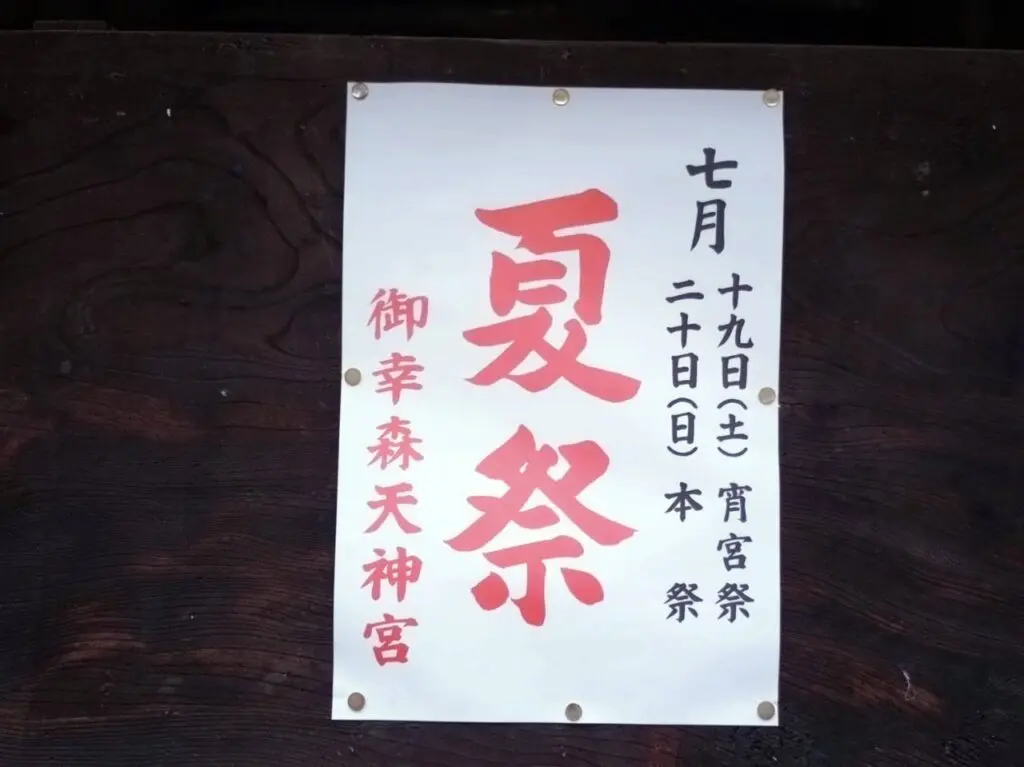 七月
十九日(土) 宵宮祭
二十日(日) 本祭
夏祭
御幸森天神宮